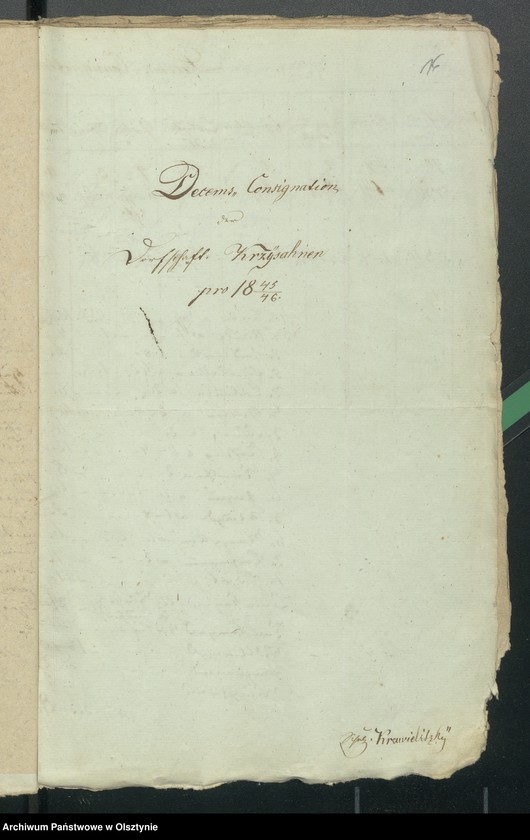 Decems Consignation
der
Dorfschaft Krzÿsahnen
pro 18 45/46.
Schulz Krawielitzkÿ
Archiwum Państwowe w Olsztynie